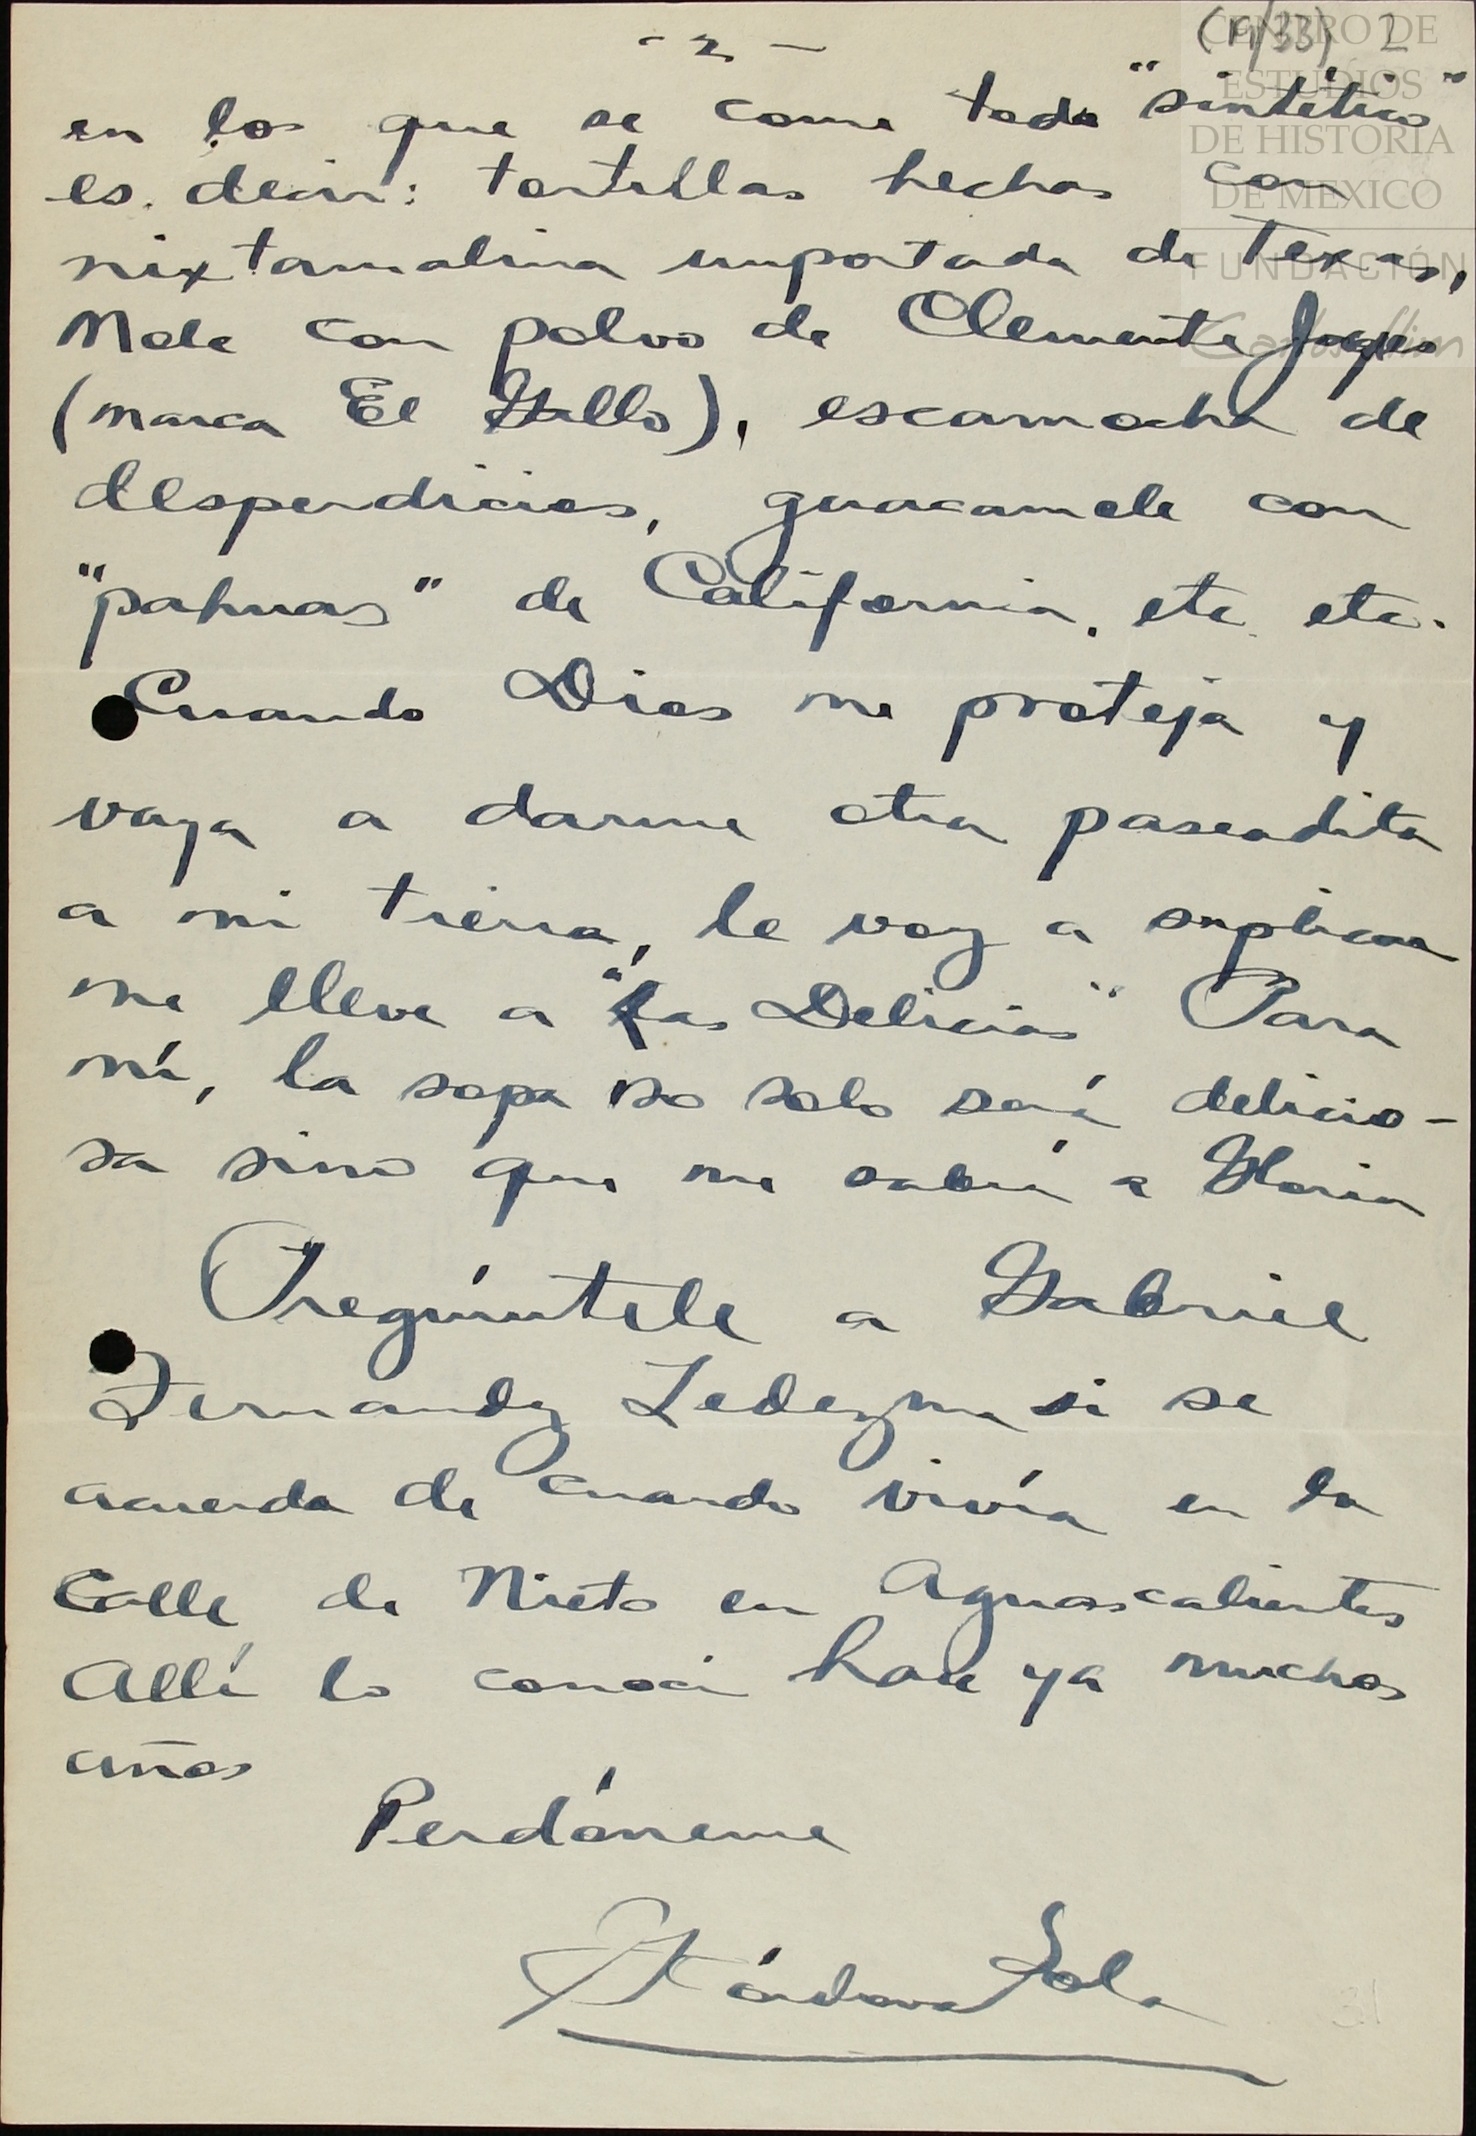 - 2 -
(19/33) 2
CENTRO DE
ESTUDIOS
DE HISTORIA
DE MEXICO
FUNDACIÓN
Carlos Slim
en los que se come todo "sintético"
es decir: tortillas hechas con
nixtamalina importada de Texas,
Mole con polvo de Clemente Jaques
(marca El Gallo), escamocha de
desperdicios, guacamole con
"pahuas" de California, etc. etc.
Cuando Dios me proteja y
vaya a darme otra paseadita
a mi tierra, le voy a suplicar
me lleve a "Las Delicias" Para
mí, la sopa no solo será delicio-
sa sino que me sabrá a Gloria
Pregúntele a Gabriel
Fernandez Ledezma si se
acuerda de cuando vivía en la
Calle de Nieto en Aguascalientes
Allí lo conocí hace ya muchos
años
Perdóneme
Córdova Sola
31